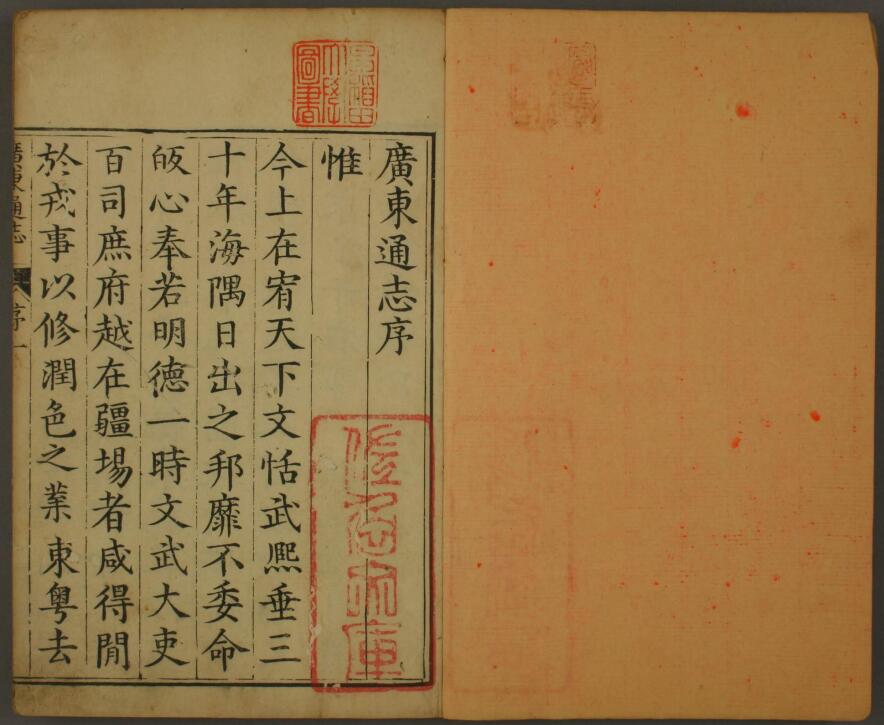 廣東通志序
惟
今上在宥天下文恬武熙垂三
十年海隅日出之邦靡不委命
皈心奉若明德一時文武大吏
百司庶府越在疆場者咸得閒
於戎事以修潤色之業東粤去
廣東通志
序
一
圖書